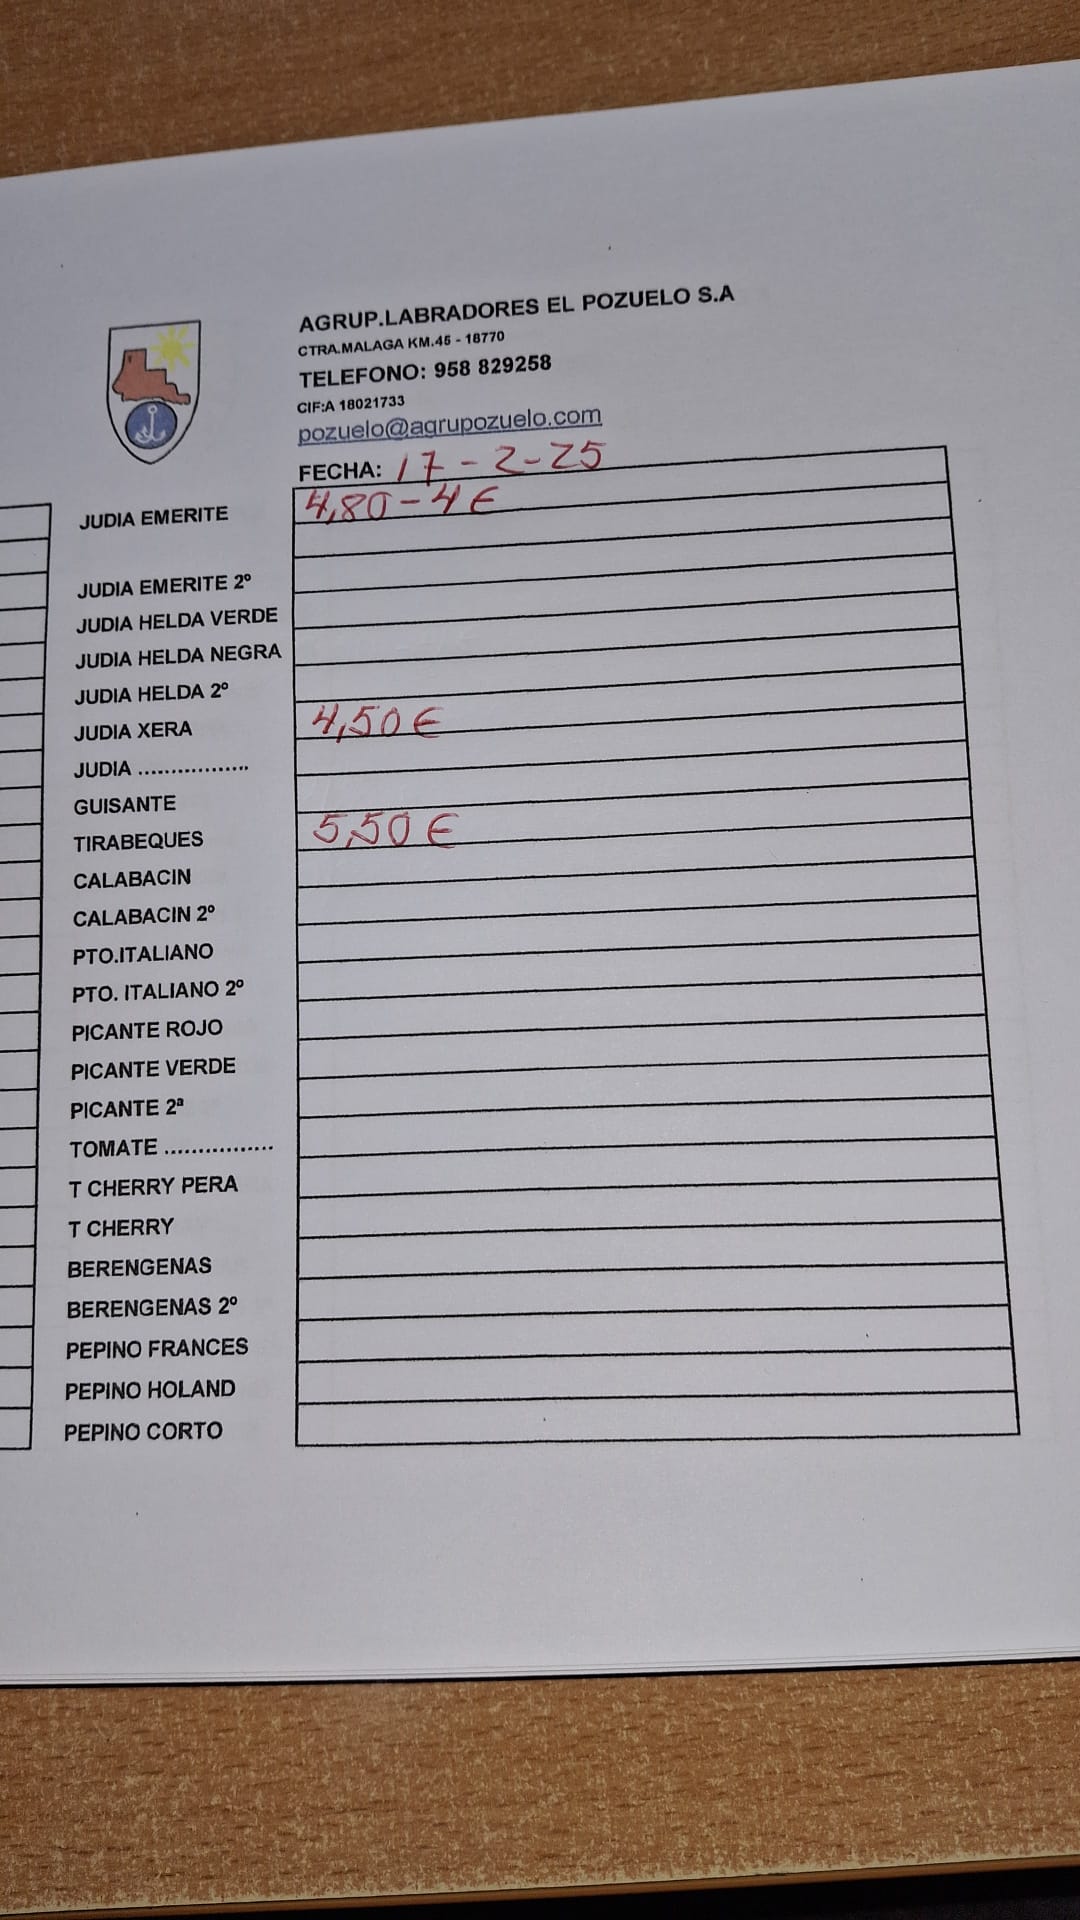 AGRUP.LABRADORES EL POZUELO S.A
CTRA.MALAGA KM.45 - 18770
TELEFONO: 958 829258
CIF:A 18021733
pozuelo@agrupozuelo.com
FECHA: 17-2-25
JUDIA EMERITE 4,80-4€
JUDIA EMERITE 2º
JUDIA HELDA VERDE
JUDIA HELDA NEGRA
JUDIA HELDA 2º
JUDIA XERA 4,50€
JUDIA .................
GUISANTE
TIRABEQUES 5,50€
CALABACIN
CALABACIN 2º
PTO.ITALIANO
PTO. ITALIANO 2º
PICANTE ROJO
PICANTE VERDE
PICANTE 2ª
TOMATE ................
T CHERRY PERA
T CHERRY
BERENGENAS
BERENGENAS 2º
PEPINO FRANCES
PEPINO HOLAND
PEPINO CORTO